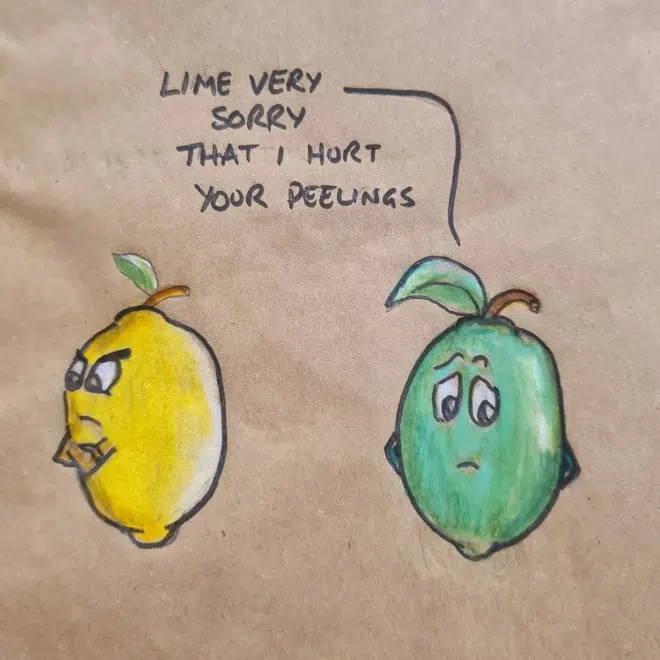 LIME VERY
SORRY
THAT I HURT
YOUR PEELINGS